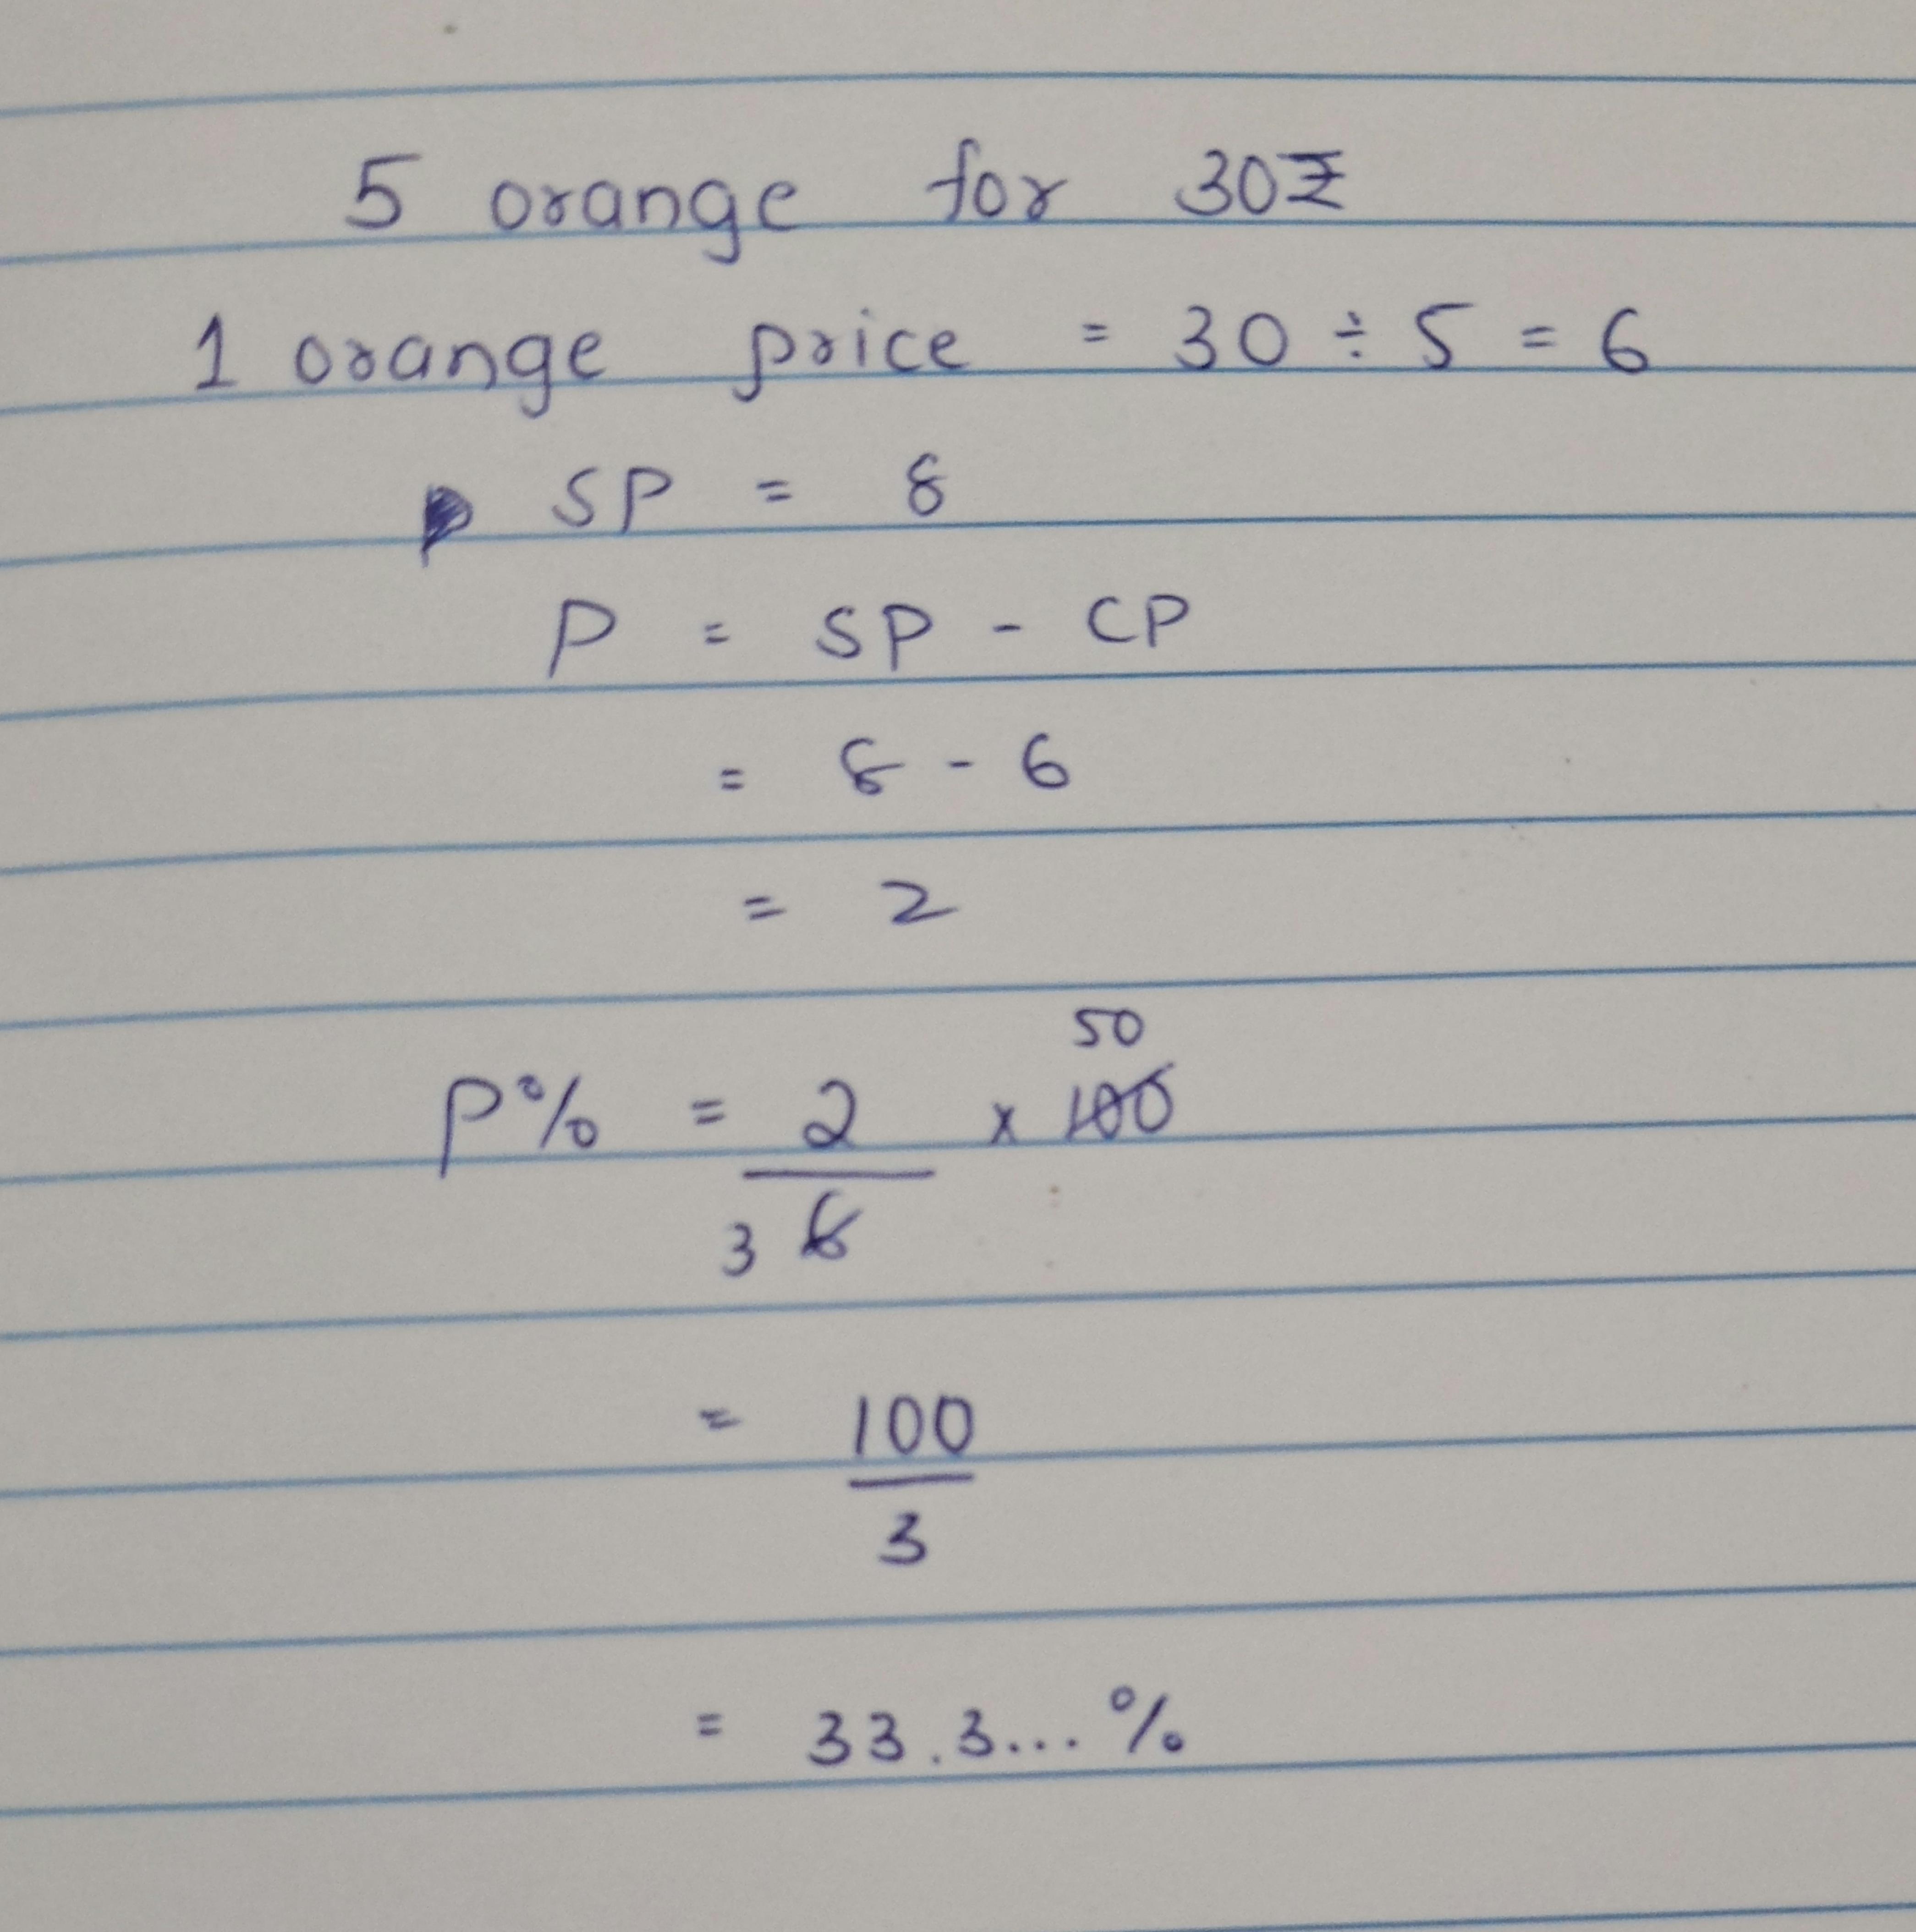 5 orange for 30₹
1 orange price = 30 ÷ 5 = 6
SP = 8
P = SP - CP
= 8 - 6
= 2
50
P% = 2 x 100
3 6
= 100
3
= 33.3...%